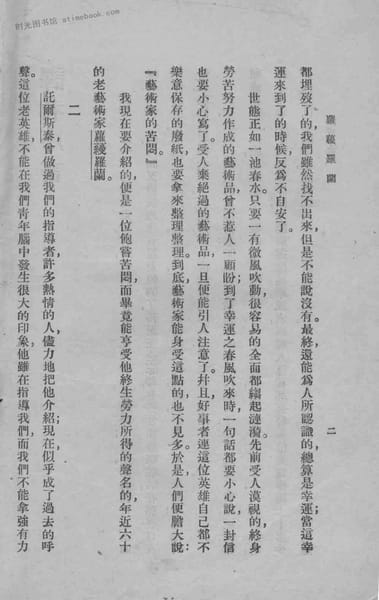 时光图书馆 atimebook.com
羅稷羅蘭
二
都埋歿了的,我們雖然找不出來,但是不能說沒有。最終,還能爲人所認識的,總算是幸運;當這幸
運來到了的時候,反爲不自安了。
世態正如一池春水。只要一有微風吹動,很容易的全面都縐起漣漪。先前受人漠視的,終身
勞苦努力作成的藝術品,曾不惹人一顧;盼到了幸運之春風吹來時,一句話都要小心說,一封信
也要小心寫了。受人棄絕過的藝術品,一旦便能引人注意了。幷且,好事者連這位英雄自己都不
樂意保存的廢紙,也要拿來整理整理。到底,藝術家能身受這點的,也不見多。於是,人們便膽大說:
『藝術家的苦悶。』
我現在要介紹的,便是一位飽嘗苦悶,而畢竟能享受他終生勞力所得的聲名的,年近六十
的老藝術家羅稷羅蘭。
二
託爾斯泰,曾做過我們的指導者,許多熱情的人,儘力地把他介紹;現在,似乎成了過去的呼
聲。這位老英雄,不能在我們靑年腦中發生很大的印象,他雖在指導我們,而我們不能拿強有力